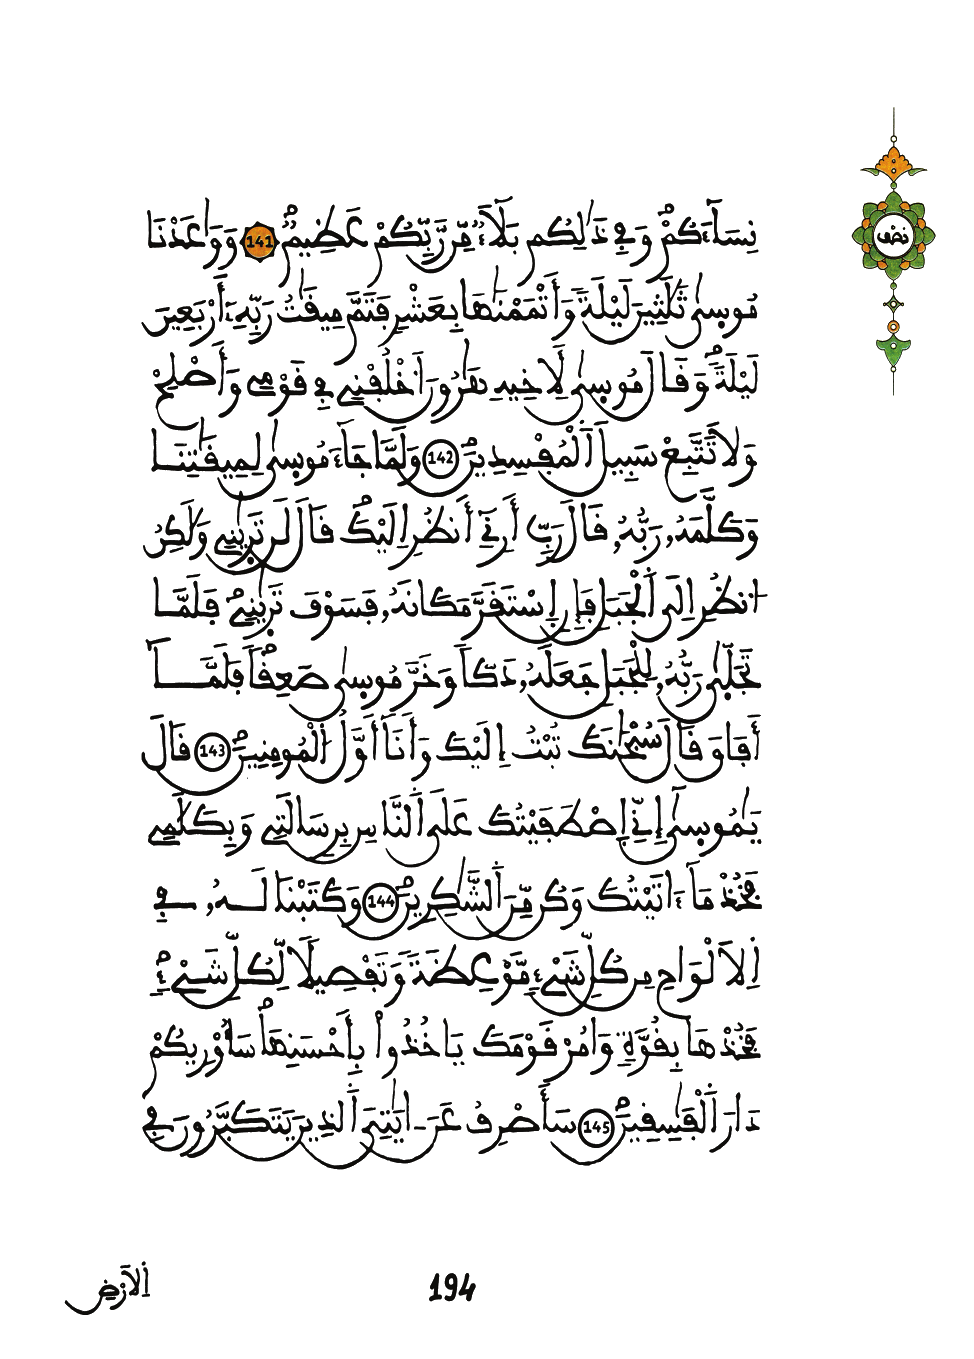 نِسَآءَكُمْۖ وَفِے ذَٰلِكُم بَلَآءٞ مِّن رَّبِّكُمْ عَظِيمٞۖ 141 وَوَٰعَدْنَا
مُوسِىٰ ثَلَٰثِينَ لَيْلَةٗ وَأَتْمَمْنَٰهَا بِعَشْرٖ فَتَمَّ مِيقَٰتُ رَبِّهِۦٓ أَرْبَعِينَ
لَيْلَةٗۖ وَقَالَ مُوسِىٰ لِأَخِيهِ هَٰرُونَ ٱخْلُفْنِے فِے قَوْمِے وَأَصْلِحْ
وَلَا تَتَّبِعْ سَبِيلَ ٱلْمُفْسِدِينَۖ 142 وَلَمَّا جَآءَ مُوسِىٰ لِمِيقَٰتِنَا
وَكَلَّمَهُۥ رَبُّهُۥ قَالَ رَبِّ أَرِنِےٓ أَنظُرِ اِلَيْكَۖ قَالَ لَن تَرَىٰنِے وَلَٰكِنُ
اُ۟نظُرِ اِلَى ٱلْجَبَلِ فَإِنِ اِ۪سْتَقَرَّ مَكَانَهُۥ فَسَوْفَ تَرَىٰنِےۖ فَلَمَّا
تَجَلَّىٰ رَبُّهُۥ لِلْجَبَلِ جَعَلَهُۥ دَكّٗا وَخَرَّ مُوسِىٰ صَعِقٗاۖ فَلَمَّآ
أَفَاقَ قَالَ سُبْحَٰنَكَ تُبْتُ إِلَيْكَ وَأَنَآ أَوَّلُ ٱلْمُومِنِينَۖ 143 قَالَ
يَٰمُوسِىٰٓ إِنِّے اِ۪صْطَفَيْتُكَ عَلَى ٱلنَّاسِ بِرِسَٰلَتِے وَبِكَلَٰمِے
فَخُذْ مَآ ءَاتَيْتُكَ وَكُن مِّنَ ٱلشَّٰكِرِينَۖ 144 وَكَتَبْنَا لَهُۥ فِے
اِ۬لَالْوَاحِ مِن كُلِّ شَےْءٖ مَّوْعِظَةٗ وَتَفْصِيلٗا لِّكُلِّ شَےْءٖۖ
فَخُذْهَا بِقُوَّةٖ وَامُرْ قَوْمَكَ يَاخُذُواْ بِأَحْسَنِهَاۖ سَأُوْرِيكُمْ
دَارَ ٱلْفَٰسِقِينَۖ 145 سَأَصْرِفُ عَنَ اٰيَٰتِيَ ٱلذِينَ يَتَكَبَّرُونَ فِے
نصف
194
اِ۬لَارْضِ